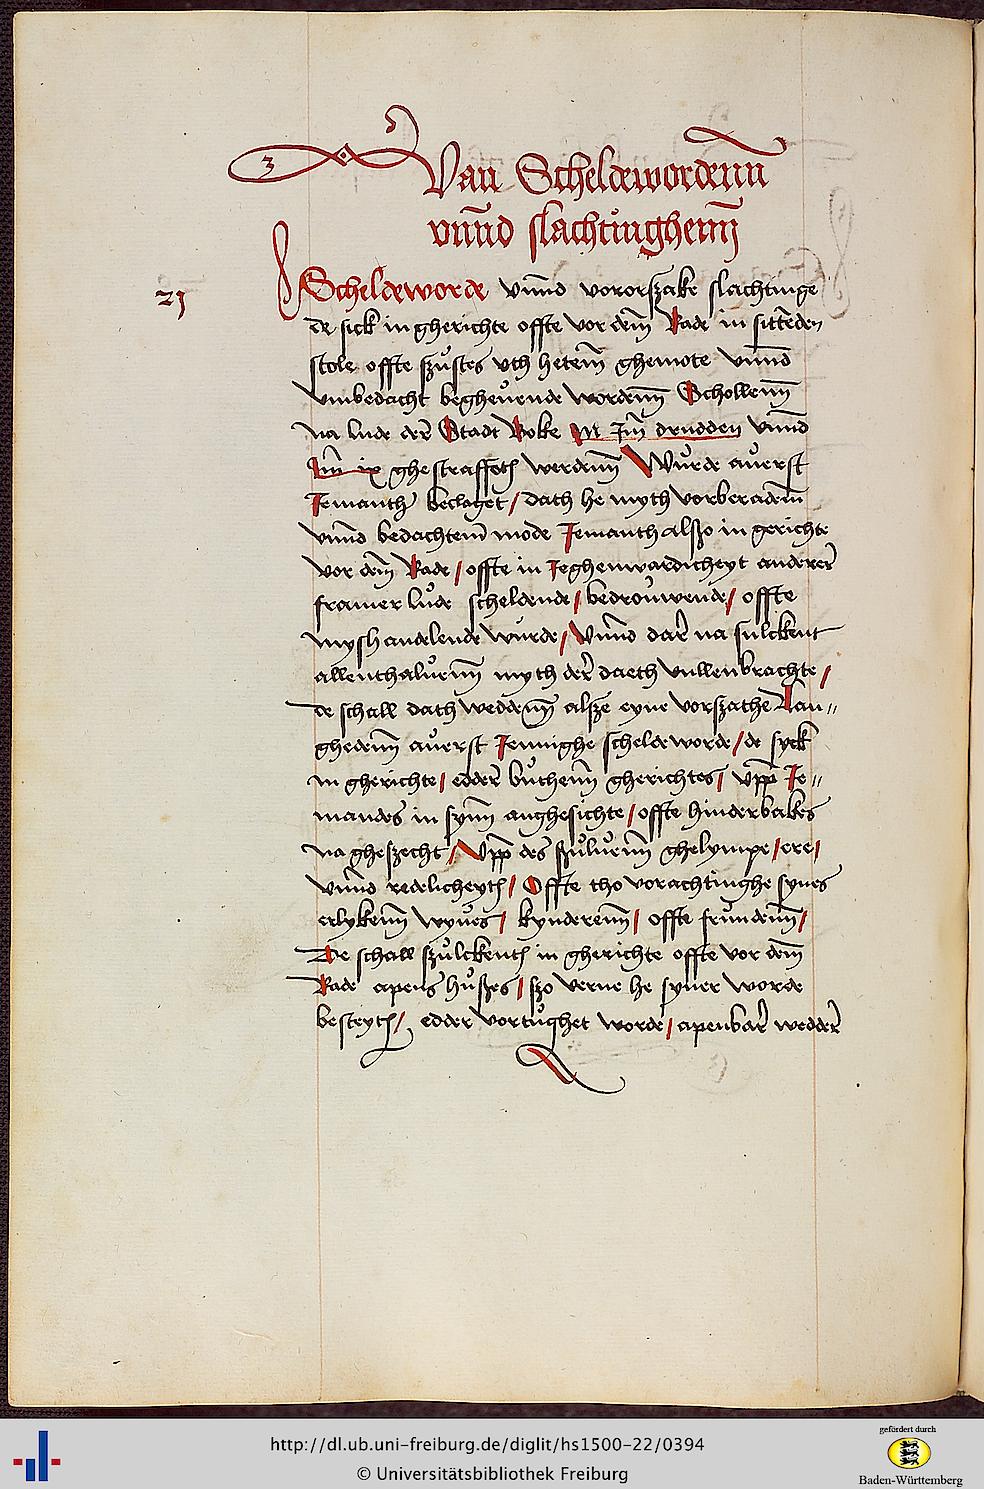 3 Van Scheldewordenn
vnnd slachtinghenn
21 Scheldeworde vnnd vororszake slachtinge
de sick in gherichte offte vor dem Rade in sittenden
stole offte szůstes vth hetem ghemote vnnd
vmbedacht begheuende wordenn Schollenn
na lude der Stadt Boke M Jm drudden vnnd
Jm ix ghestraffeth werdenn Wurde auerst
Jemanth beclaget / dath he myth vorberadem
vnnd bedachtem mode Jemanth alszo in gerichte
vor dem Rade / offte in Jeghenwardicheyt anderer
framer lůde scheldende / bedrouwende / offte
myshandelende wurde / Vnnd dar na sulckent
allenthaluenn myth der daeth vullenbrachte /
de schall dath weddenn alsze eyne vorszathe Lan„
ghedenn auerst Jennighe scheldeworde / de syck
in gherichte / edder bůthenn gherichtes / vpp Je„
mandes in synn anghesichte / offte hinderbakes
na gheszecht / Vpp des szůluenn ghelympe / ere /
vnnd redelicheyth / Offte tho vorachtinghe synes
erlykenn wyues / kynderenn / offte frundenn /
De schall szůlckenth in gherichte offte vor dem
Rade apens hůszes / szo verne he syner worde
besteyth / edder vortůghet worde / apenbar wedder
http://dl.ub.uni-freiburg.de/diglit/hs1500-22/0394
© Universitätsbibliothek Freiburg
gefördert durch
Baden-Württemberg